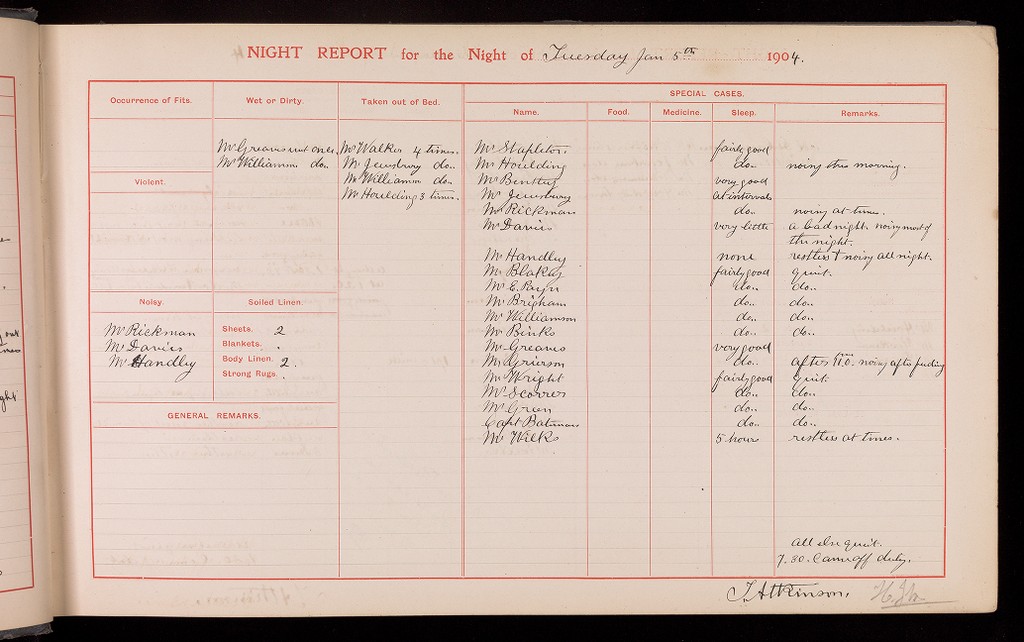 NIGHT REPORT for the Night of Tuesday Jan 5th 1904.
SPECIAL CASES.
Occurrence of Fits. Wet or Dirty. Taken out of Bed. Name. Food. Medicine. Sleep. Remarks.
Mr Greaves wet once. Mr Walker 4 times. Mr Stapleton. fairly good
Mr Williamson do.. Mr Jewsbury do.. Mr Houlding do.. noisy this morning.
Violent. Mr Williamson do.. Mr Bentley very good
Mr Houlding 3 times. Mr Jewsbury at intervals
Mr Rickman do.. noisy at times.
Mr Davies very little a bad night. noisy most of
the night.
Mr Handley none restless & noisy all night.
Mr Blakey fairly good quiet.
Mr E. Payn do.. do..
Noisy. Soiled Linen. Mr Brigham do.. do..
Mr Williamson do.. do..
Mr Rickman Sheets. 2 Mr Binks do.. do..
Mr Davies Blankets. . Mr Greaves very good
Mr Handley Body Linen. 2. Mr Grierson do.. after noisy after feeding
Strong Rugs. . Mr Wright fairly good quiet.
Mr Scorrer do.. do..
GENERAL REMARKS. Mr Green do.. do..
Capt Bateman do.. do..
Mr Wilks 5 hours restless at times.
All else quiet.
7.30. Came off duty.
J. Atkinson.